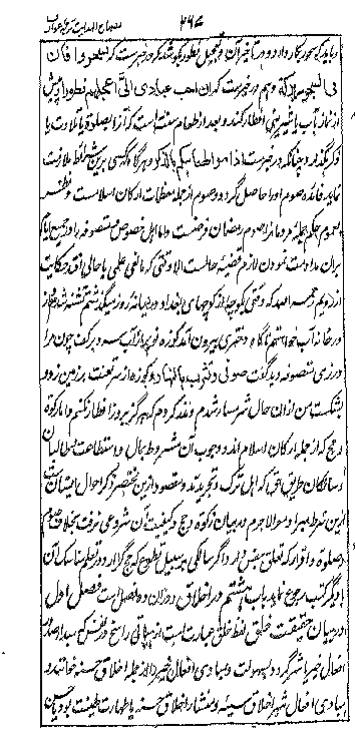 ۲۴۶
و باید که سحور بکار دارد و در تاخیر آن و تعجیل فطور بکوشد که در خبر است که تسحروا فان
فی السحور برکة و هم در خبر است که ان احب عبادی الیّ اعجلهم فطورا و پیش
از نماز آب یا شیرینی افطار کند و بعد از طعام سنت است که آنرا بصلوة یا تلاوت یا
ذکر بگذراند چنانکه در خبر است اذیبوا طعامکم بالذکر و هرگاه که برین شرائط ملازمت
نماید فائده صوم او را حاصل گردد و صوم از جمله معظمات ارکان اسلامست و
صوم بحکم جمله مردمانرا صوم رمضان فرضست و اما اهل خصوص متصوفه را و جمیع ایام
بران مداومت نمودن لازم قضیه حالست الا وقتی که مانعی علمی یا حالی افتد حکایت
از رویم رحمه الله که وقتی بکوچه از کوچهای بغداد در میانه روز میگذشتم تشنه شدم از
در خانه آب خواستم ناگاه دختری بیرون آمد کوزه نو پر از آب سرد بر کف چون مرا
در زی متصوفه دید گفت صوفی و یشرب بالنهار و کوزه از سر تعنت بر زمین زد و
بشکست من از آن حال شرمسار شدم و نذر کردم که هرگز بروز افطار نکنم و اما زکوة
و حج که از جمله ارکان اسلام اند و وجوب آن مشروط بمال و استطاعت طالبان
و سالکان طریق حق که اهل ترک و تجرید اند و مقصود ازین مختصر ذکر احوال ایشان
ازین شرط مبرا و معرا لاجرم در بیان زکوة و حج و کیفیت آن شروعی نرفت بخلاف صوم
و صلوة و اقرار که تعلق بنفس دارد و اگر سالکی بسبیل تطوع که حج گزارد و در تعلم مناسک آن
با دیگر کتب رجوع نماید باب هشتم در اخلاق و دران ده فصل است فصل اول
در بیان حقیقت خلق لفظ خلق عبارت است از هیأتی راسخ در نفس که مبدا صدور
افعال خیر یا شر گردد بسهولت و مبادی افعال خیر را از جمله اخلاق حسنه خوانند و
مبادی افعال شر را اخلاق سیئه و منشأ اخلاق حسنه یا طهارت طینت بود یا حسن